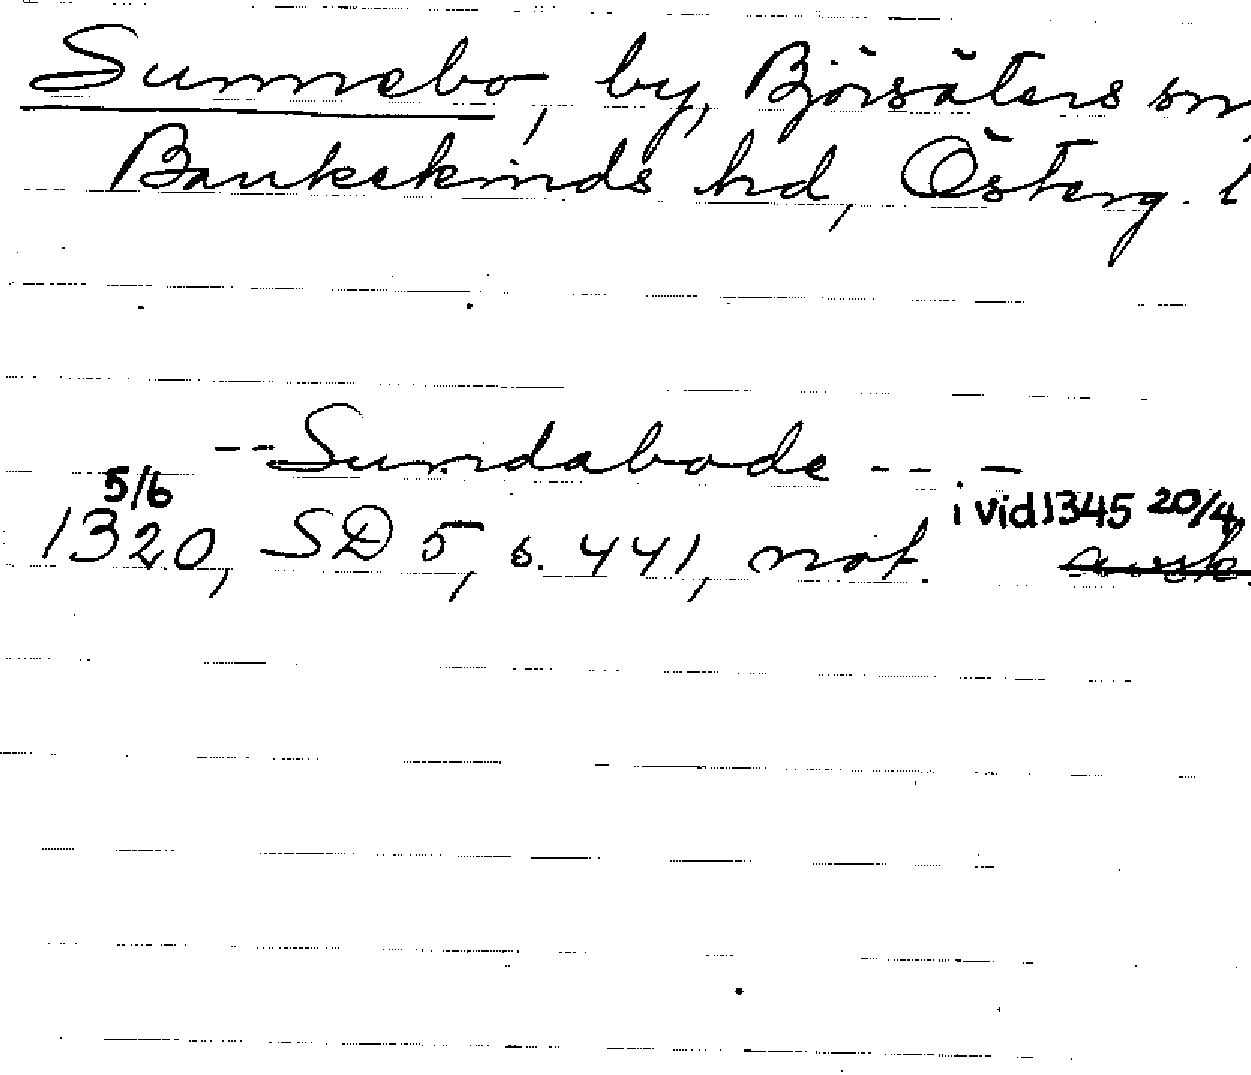 Sunnebo, by, Björsäters sn
Bankekinds hd, Österg. l
-- Sundabode -- -
5/6
i vid 1345 20/4
1320, SD 5, s. 441, not. avsk.